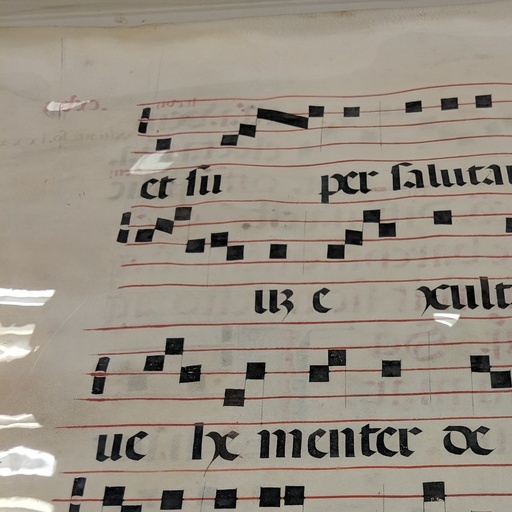 et su per saluta
uz e xult
ue he menter de